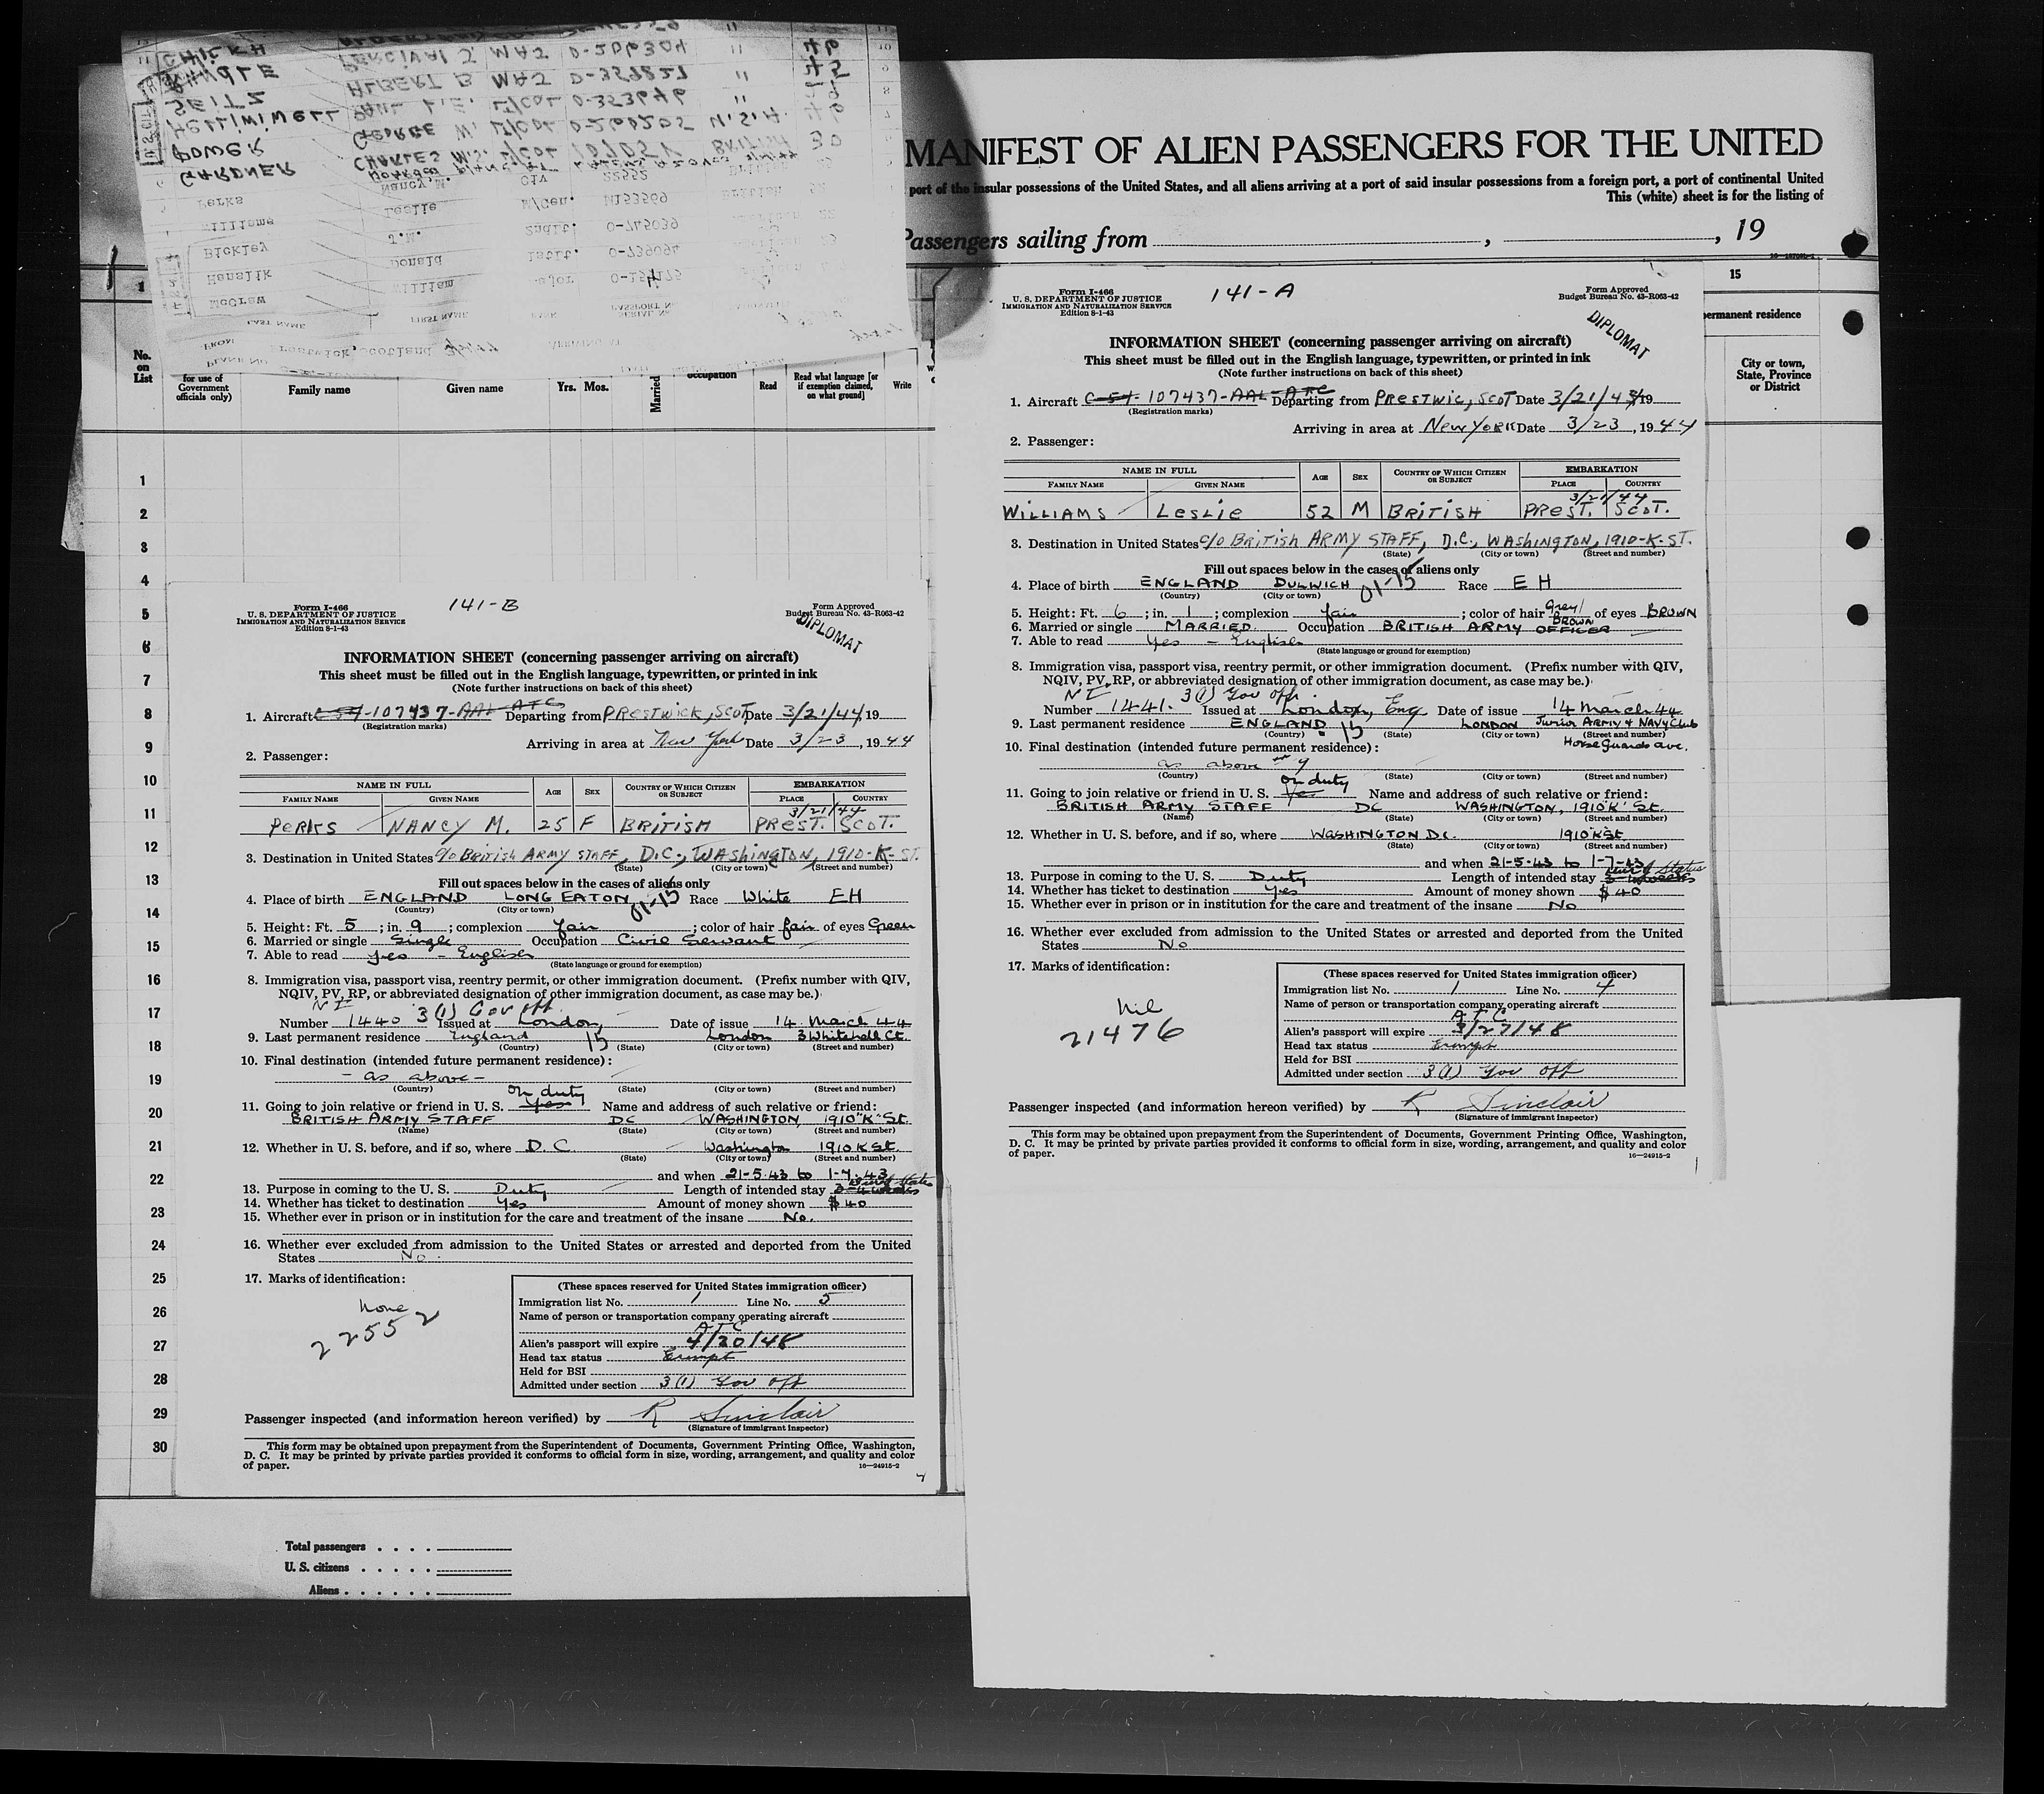 MANIFEST OF ALIEN PASSENGERS FOR THE UNITED
port of the insular possessions of the United States, and all aliens arriving at a port of said insular possessions from a foreign port, a port of continental United
This (white) sheet is for the listing of
Passengers sailing from , , 19
15
permanent residence
City or town,
State, Province
or District
No.
on
List
for use of
Government
officials only)
Family name
Given name
Yrs. Mos.
Married
occupation
Read
Read what language [or
if exemption claimed,
on what ground]
Write
GARDNER CHARLES W.S. LT/COL 107051 BRITISH 30
POWER GEORGE W. LT/COL O-260205 U.S.A.
HELLIWELL PAUL L.E. LT/COL
SEITZ ALBERT B MAJ
RINDLE PERCIVAL J MAJ
Perks Nancy, M. Civ 22552
Williams Leslie M/Gen. M153569 British
Bickley J.M. 2ndLt. O-745039
Hanslik Donald 1stLt. O-739094
McGraw William Major
LAST NAME FIRST NAME
FROM Prestwick, Scotland
PLANE NO.
1
2
3
4
5
6
7
8
9
10
11
12
13
14
15
16
17
18
19
20
21
22
23
24
25
26
27
28
29
30
Total passengers . . . .
U. S. citizens . . . . .
Aliens . . . . . .
Form I-466
U. S. DEPARTMENT OF JUSTICE
IMMIGRATION AND NATURALIZATION SERVICE
Edition 8-1-43
141-B
Form Approved
Budget Bureau No. 43-R063-42
DIPLOMAT
INFORMATION SHEET (concerning passenger arriving on aircraft)
This sheet must be filled out in the English language, typewritten, or printed in ink
(Note further instructions on back of this sheet)
1. Aircraft C-54-107437-AAL-ATC Departing from PRESTWICK, SCOT Date 3/21/44, 19
(Registration marks)
Arriving in area at New York Date 3/23, 1944
2. Passenger:
NAME IN FULL AGE SEX COUNTRY OF WHICH CITIZEN OR SUBJECT EMBARKATION
FAMILY NAME GIVEN NAME PLACE COUNTRY
3/21/44
PERKS NANCY M. 25 F BRITISH PREST. SCOT.
3. Destination in United States c/o British ARMY STAFF, D.C., WASHINGTON, 1910-K-ST.
(State) (City or town) (Street and number)
Fill out spaces below in the cases of aliens only
4. Place of birth ENGLAND LONG EATON 01-15 Race White EH
(Country) (City or town)
5. Height: Ft. 5 ; in. 9 ; complexion fair ; color of hair fair of eyes Green
6. Married or single Single Occupation Civil Servant
7. Able to read yes - English
(State language or ground for exemption)
8. Immigration visa, passport visa, reentry permit, or other immigration document. (Prefix number with QIV,
NQIV, PV, RP, or abbreviated designation of other immigration document, as case may be.)
NI 3(1) Gov off.
Number 1440 Issued at London, Date of issue 14 March 44
9. Last permanent residence England 15 London 3 Whitehall Ct.
(Country) (State) (City or town) (Street and number)
10. Final destination (intended future permanent residence):
- as above -
(Country) (State) (City or town) (Street and number)
on duty
11. Going to join relative or friend in U. S. Yes Name and address of such relative or friend:
BRITISH ARMY STAFF DC WASHINGTON, 1910 "K" St.
(Name) (State) (City or town) (Street and number)
12. Whether in U. S. before, and if so, where D.C. Washington 1910 K St.
(State) (City or town) (Street and number)
and when 21-5-43 to 1-7-43
13. Purpose in coming to the U. S. Duty Length of intended stay 3-4 weeks
14. Whether has ticket to destination Yes Amount of money shown $40
15. Whether ever in prison or in institution for the care and treatment of the insane No.
16. Whether ever excluded from admission to the United States or arrested and deported from the United
States No.
17. Marks of identification:
None
22552
(These spaces reserved for United States immigration officer)
Immigration list No. 1 Line No. 5
Name of person or transportation company operating aircraft
ATC
Alien's passport will expire 4/20/48
Head tax status Exempt
Held for BSI
Admitted under section 3(1) Gov off
Passenger inspected (and information hereon verified) by R Sinclair
(Signature of immigrant inspector)
This form may be obtained upon prepayment from the Superintendent of Documents, Government Printing Office, Washington,
D. C. It may be printed by private parties provided it conforms to official form in size, wording, arrangement, and quality and color
of paper. 16—24915-2
Form I-466
U. S. DEPARTMENT OF JUSTICE
IMMIGRATION AND NATURALIZATION SERVICE
Edition 8-1-43
141-A
Form Approved
Budget Bureau No. 43-R063-42
DIPLOMAT
INFORMATION SHEET (concerning passenger arriving on aircraft)
This sheet must be filled out in the English language, typewritten, or printed in ink
(Note further instructions on back of this sheet)
1. Aircraft C-54-107437-AAL-ATC Departing from PRESTWIC, SCOT Date 3/21/4 19
(Registration marks)
Arriving in area at New YORK Date 3/23, 1944
2. Passenger:
NAME IN FULL AGE SEX COUNTRY OF WHICH CITIZEN OR SUBJECT EMBARKATION
FAMILY NAME GIVEN NAME PLACE COUNTRY
3/21/44
WILLIAMS LESLIE 52 M BRITISH PREST. SCOT.
3. Destination in United States c/o BRITISH ARMY STAFF, D.C., WASHINGTON, 1910-K-ST.
(State) (City or town) (Street and number)
Fill out spaces below in the cases of aliens only
4. Place of birth ENGLAND DULWICH 01-15 Race EH
(Country) (City or town)
5. Height: Ft. 6 ; in. 1 ; complexion fair ; color of hair Grey/BROWN of eyes BROWN
6. Married or single MARRIED. Occupation BRITISH ARMY OFFICER
7. Able to read Yes - English
(State language or ground for exemption)
8. Immigration visa, passport visa, reentry permit, or other immigration document. (Prefix number with QIV,
NQIV, PV, RP, or abbreviated designation of other immigration document, as case may be.)
NI 3(1) Gov off.
Number 1441. Issued at London, Eng Date of issue 14 March 44
9. Last permanent residence ENGLAND. 15 LONDON Junior ARMY & NAVY Club
(Country) (State) (City or town) (Street and number)
Horse Guards ave.
10. Final destination (intended future permanent residence):
as above
(Country) (State) (City or town) (Street and number)
on duty
11. Going to join relative or friend in U. S. Yes Name and address of such relative or friend:
BRITISH ARMY STAFF DC WASHINGTON, 1910 'K' St.
(Name) (State) (City or town) (Street and number)
12. Whether in U. S. before, and if so, where WASHINGTON D.C. 1910 K St
(State) (City or town) (Street and number)
and when 21-5-43 to 1-7-43
13. Purpose in coming to the U. S. Duty Length of intended stay 3-4 weeks
14. Whether has ticket to destination Yes Amount of money shown $40
15. Whether ever in prison or in institution for the care and treatment of the insane No
16. Whether ever excluded from admission to the United States or arrested and deported from the United
States No
17. Marks of identification:
Nil
21476
(These spaces reserved for United States immigration officer)
Immigration list No. 1 Line No. 4
Name of person or transportation company operating aircraft
ATC
Alien's passport will expire 3/27/48
Head tax status Exempt
Held for BSI
Admitted under section 3(1) Gov off
Passenger inspected (and information hereon verified) by R Sinclair
(Signature of immigrant inspector)
This form may be obtained upon prepayment from the Superintendent of Documents, Government Printing Office, Washington,
D. C. It may be printed by private parties provided it conforms to official form in size, wording, arrangement, and quality and color
of paper. 16—24915-2